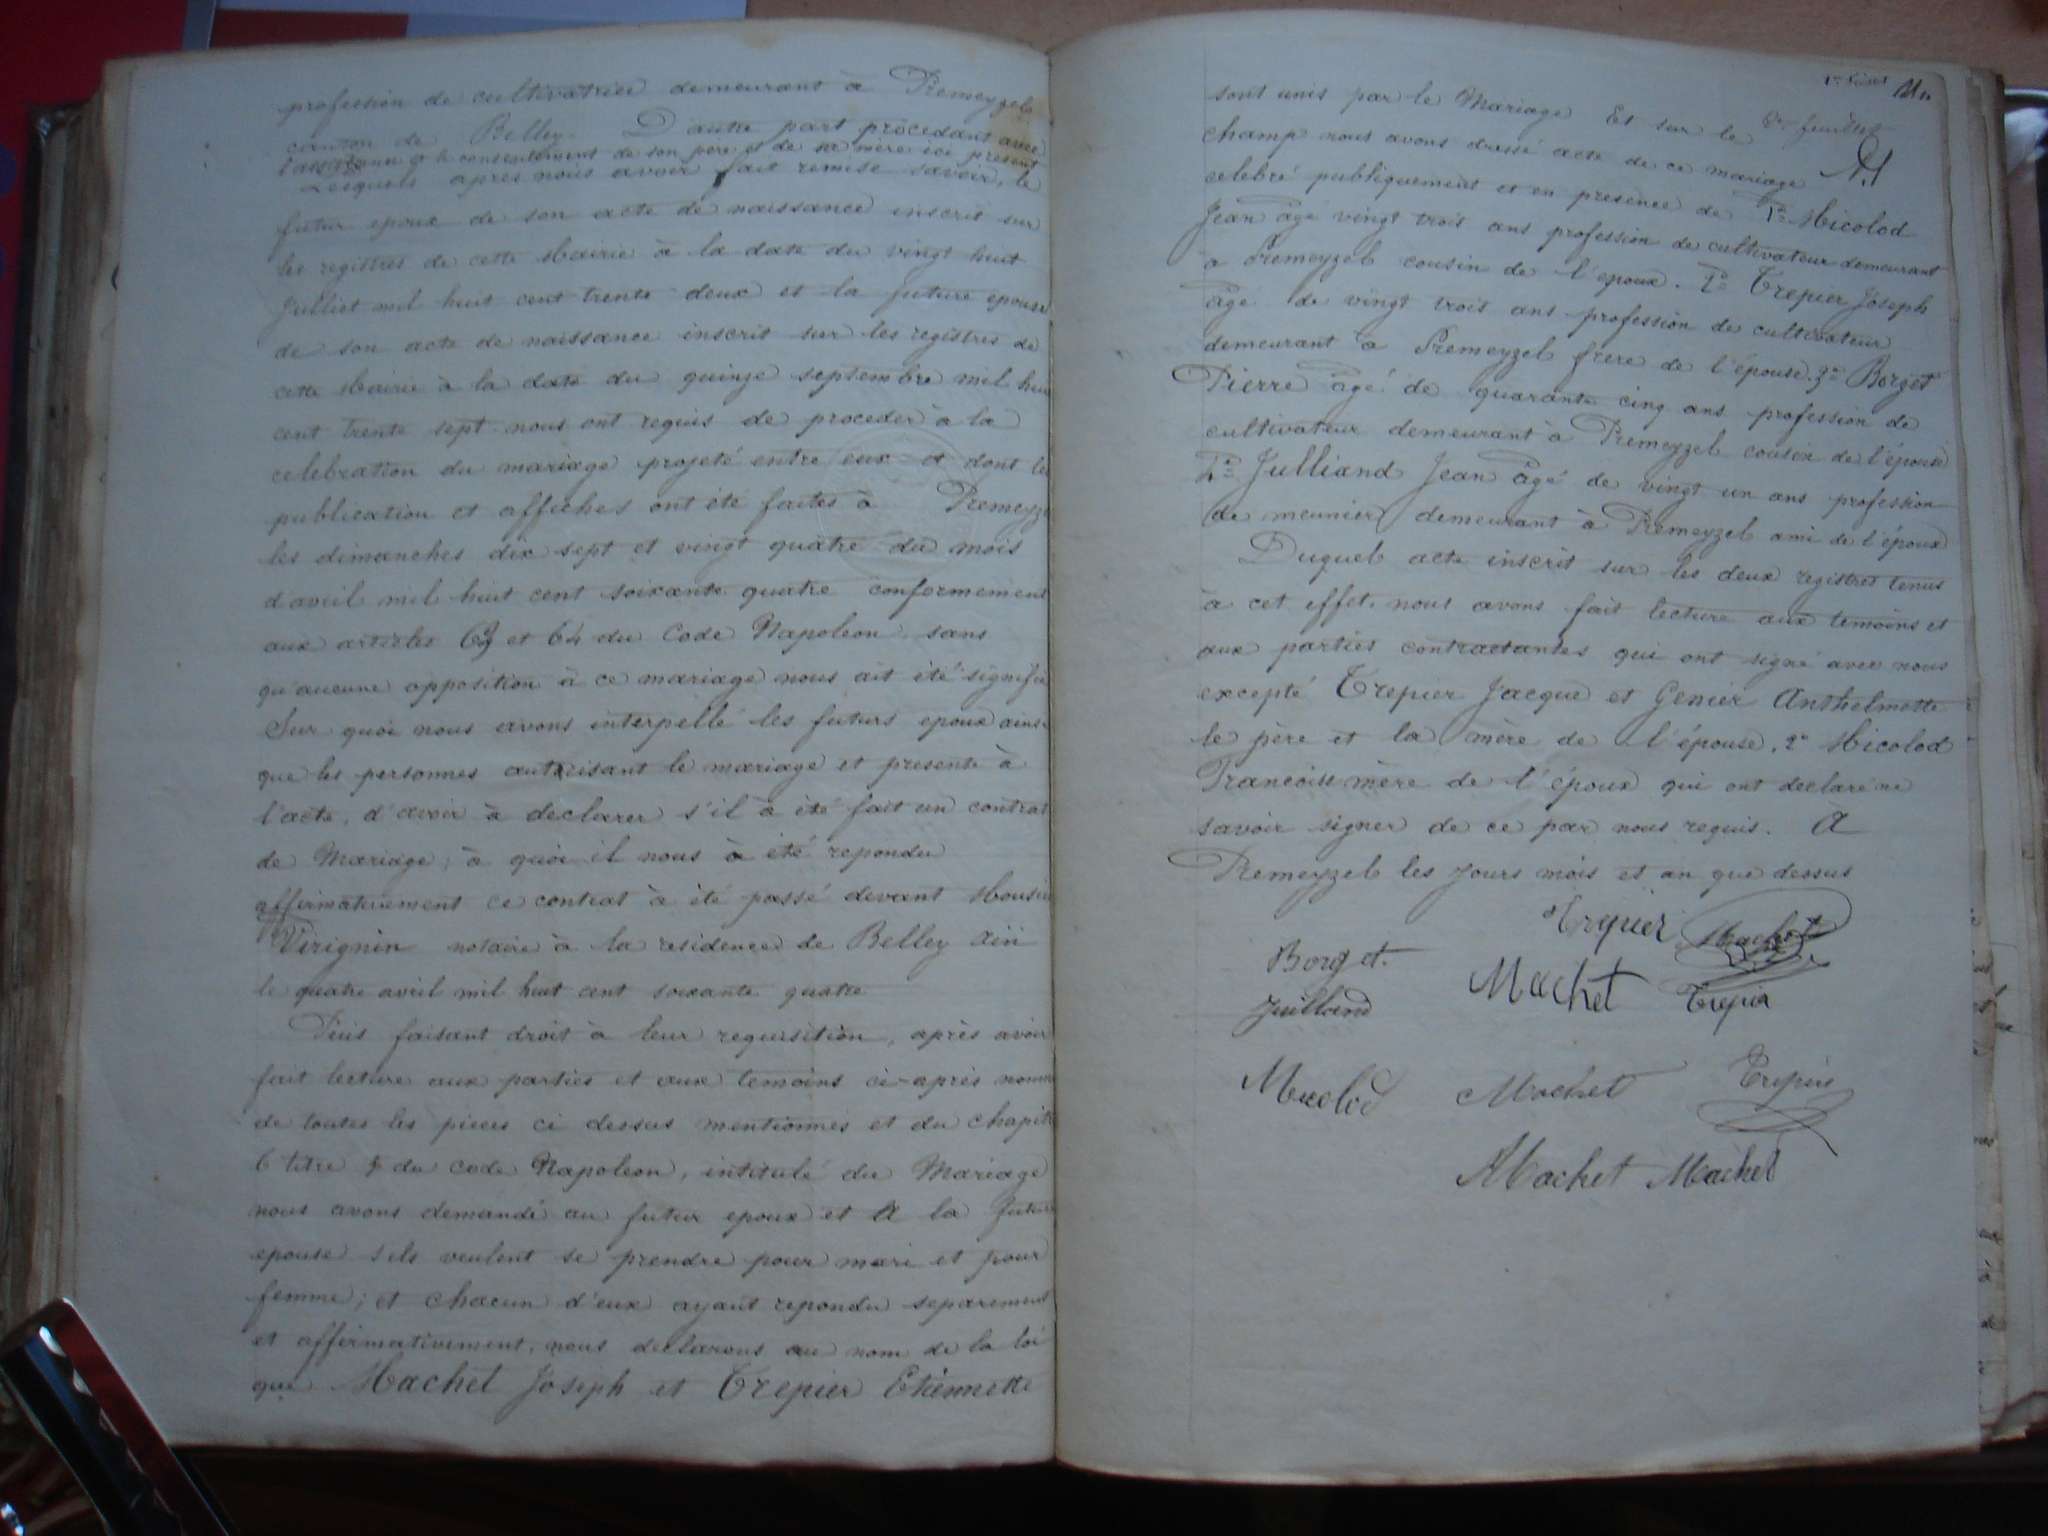 profession de cultivatrice demeurant à Premeyzel
canton de Belley. D'autre part procedant avec
l'assistance et le consentement de son père et de sa mère ici présent
Lesquels apres nous avoir fait remise savoir, le
futur epoux de son acte de naissance inscrit sur
les registres de cette Mairie à la date du vingt huit
Juilliet mil huit cent trente deux et la future epouse
de son acte de naissance inscrit sur les registres de
cette Mairie à la date du quinze septembre mil huit
cent trente sept nous ont requis de proceder à la
celebration du mariage projeté entre eux et dont les
publication et affiches ont été faites à Premeyzel
les dimanches dix sept et vingt quatre du mois
d'avril mil huit cent soixante quatre conformement
aux articles 63 et 64 du Code Napoleon, sans
qu'aucune opposition à ce mariage nous ait été signifié
Sur quoi nous avons interpellé les futurs epoux ainsi
que les personnes autorisant le mariage et presente à
l'acte, d'avoir à declarer s'il à été fait un contrat
de Mariage, à quoi il nous à été repondu
affirmativement ce contrat à été passé devant Monsieur
Virignin notaire à la residence de Belley Ain
le quatre avril mil huit cent soixante quatre
Puis faisant droit à leur requisition, après avoir
fait lecture aux parties et aux temoins ci-après nommé
de toutes les pieces ci dessus mentionnés et du chapitre
6 titre 5 du code Napoleon, intitulé du Mariage
nous avons demandé au futur epoux et A la future
epouse s'ils veulent se prendre pour mari et pour
femme; et chacun d'eux ayant repondu separement
et affirmativement, nous declarons au nom de la loi
que Machet Joseph et Trepier Etiennette
11
feuillet
sont unis par le Mariage Et sur le
champ nous avons dressé acte de ce mariage
celebré publiquement et en presence de 1° Micolod
Jean âgé vingt trois ans profession de cultivateur demeurant
à Premeyzel cousin de l'epoux. 2° Trepier Joseph
âgé de vingt trois ans profession de cultivateur
demeurant à Premeyzel frère de l'épouse. 3° Borget
Pierre âgé de quarante cinq ans profession de
cultivateur demeurant à Premeyzel cousin de l'épouse
4° Julliand Jean âgé de vingt un ans profession
de meunier demeurant à Premeyzel ami de l'époux
Duquel acte inscrit sur les deux registres tenus
à cet effet, nous avons fait lecture aux temoins et
aux parties contractantes qui ont signé avec nous
excepté Trepier Jacque et Genier Anthelmette
le père et la mère de l'épouse, 2° Micolod
Francoise mère de l'époux qui ont declaré ne
savoir signer de ce par nous requis. A
Premeyzel les jours mois et an que dessus
Trepier Machet
Borget.
Machet Trepier
Juilland
Micolod Machet Trepier
Machet Machet